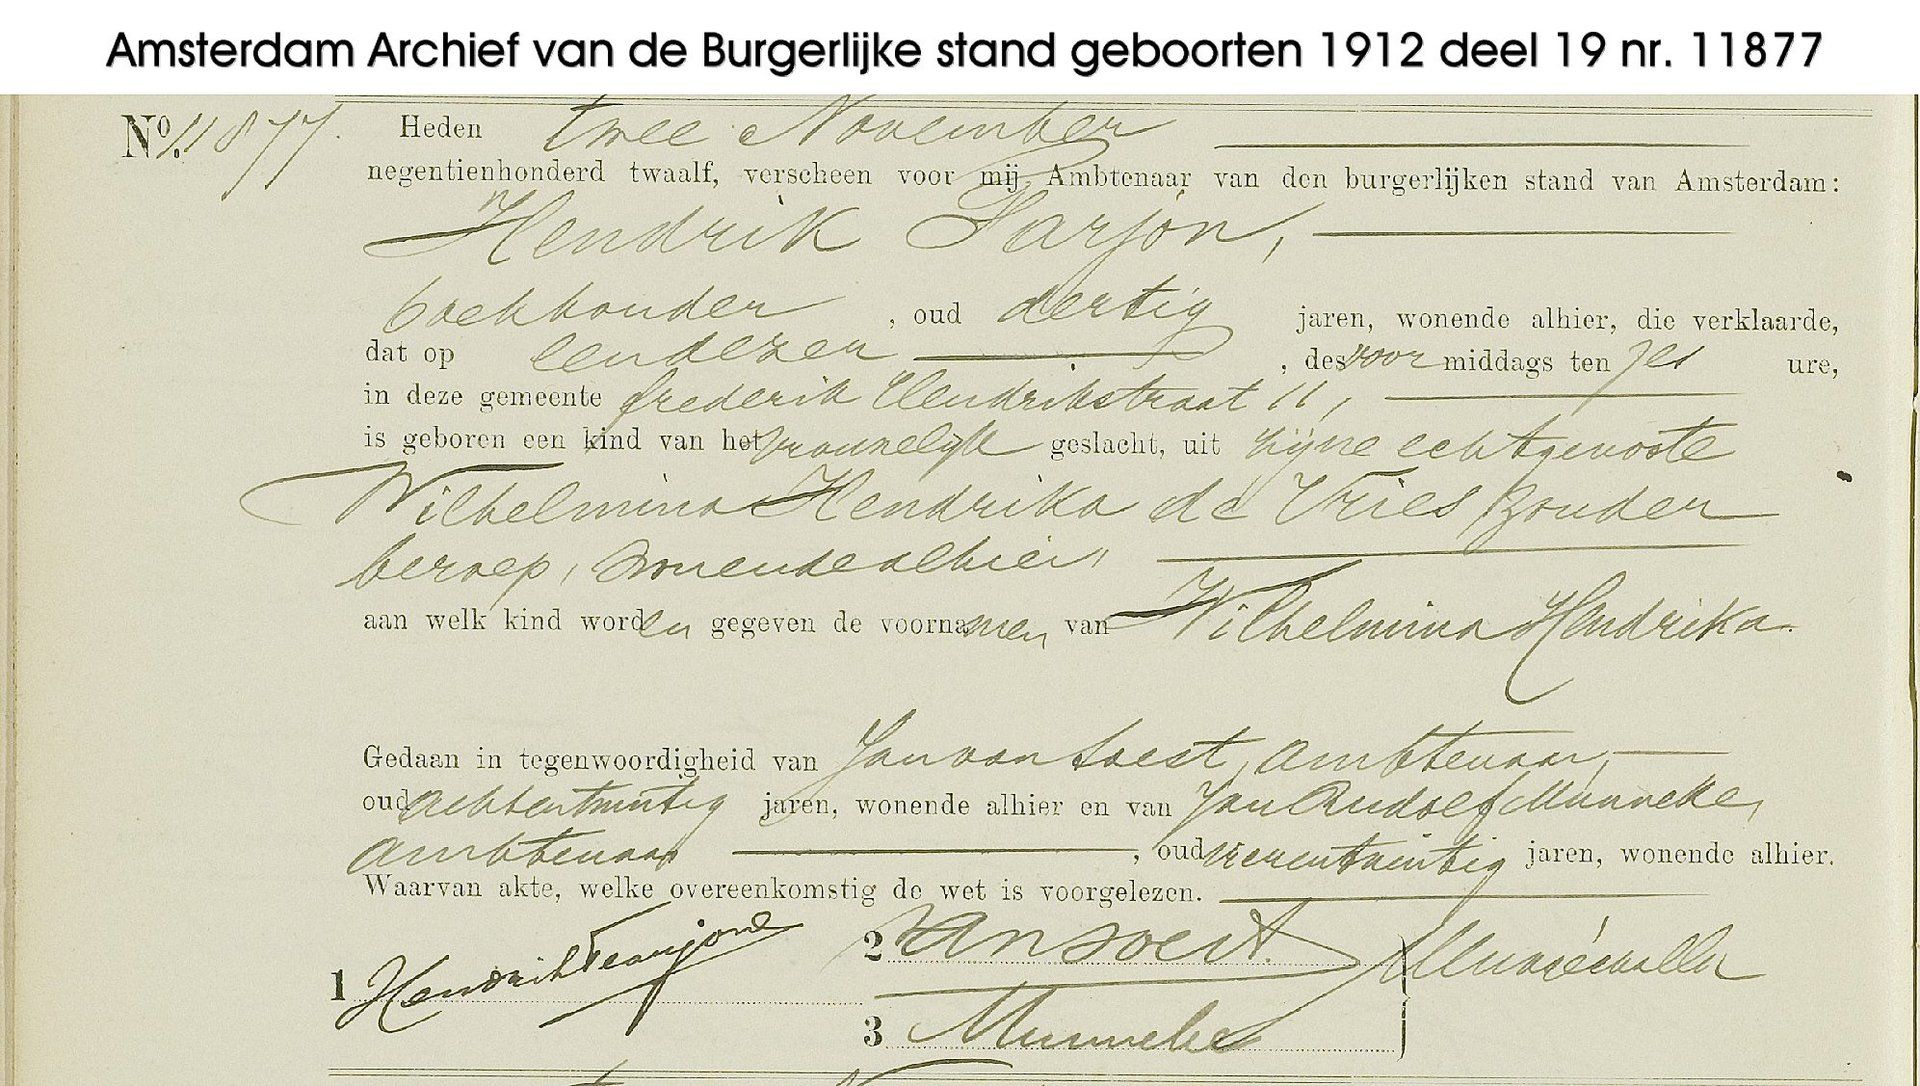 Amsterdam Archief van de Burgerlijke stand geboorten 1912 deel 19 nr. 11877
No. 11877. Heden twee November
negentienhonderd twaalf, verscheen voor mij Ambtenaar van den burgerlijken stand van Amsterdam:
Hendrik Farjon,
boekhouder, oud dertig jaren, wonende alhier, die verklaarde,
dat op eendezer, des voormiddags ten zes ure,
in deze gemeente frederik Hendrikstraat 11,
is geboren een kind van het vrouwelijk geslacht, uit zijne echtgenoote
Wilhelmina Hendrika de Vries zonder
beroep, wonende alhier,
aan welk kind worden gegeven de voornamen van Wilhelmina Hendrika.
Gedaan in tegenwoordigheid van Jan van Soest, ambtenaar,
oud achtentwintig jaren, wonende alhier en van Jan Rudolf Munneke,
ambtenaar, oud vierentwintig jaren, wonende alhier.
Waarvan akte, welke overeenkomstig de wet is voorgelezen.
1 Hendrik 2 van Soest.
3 Munneke